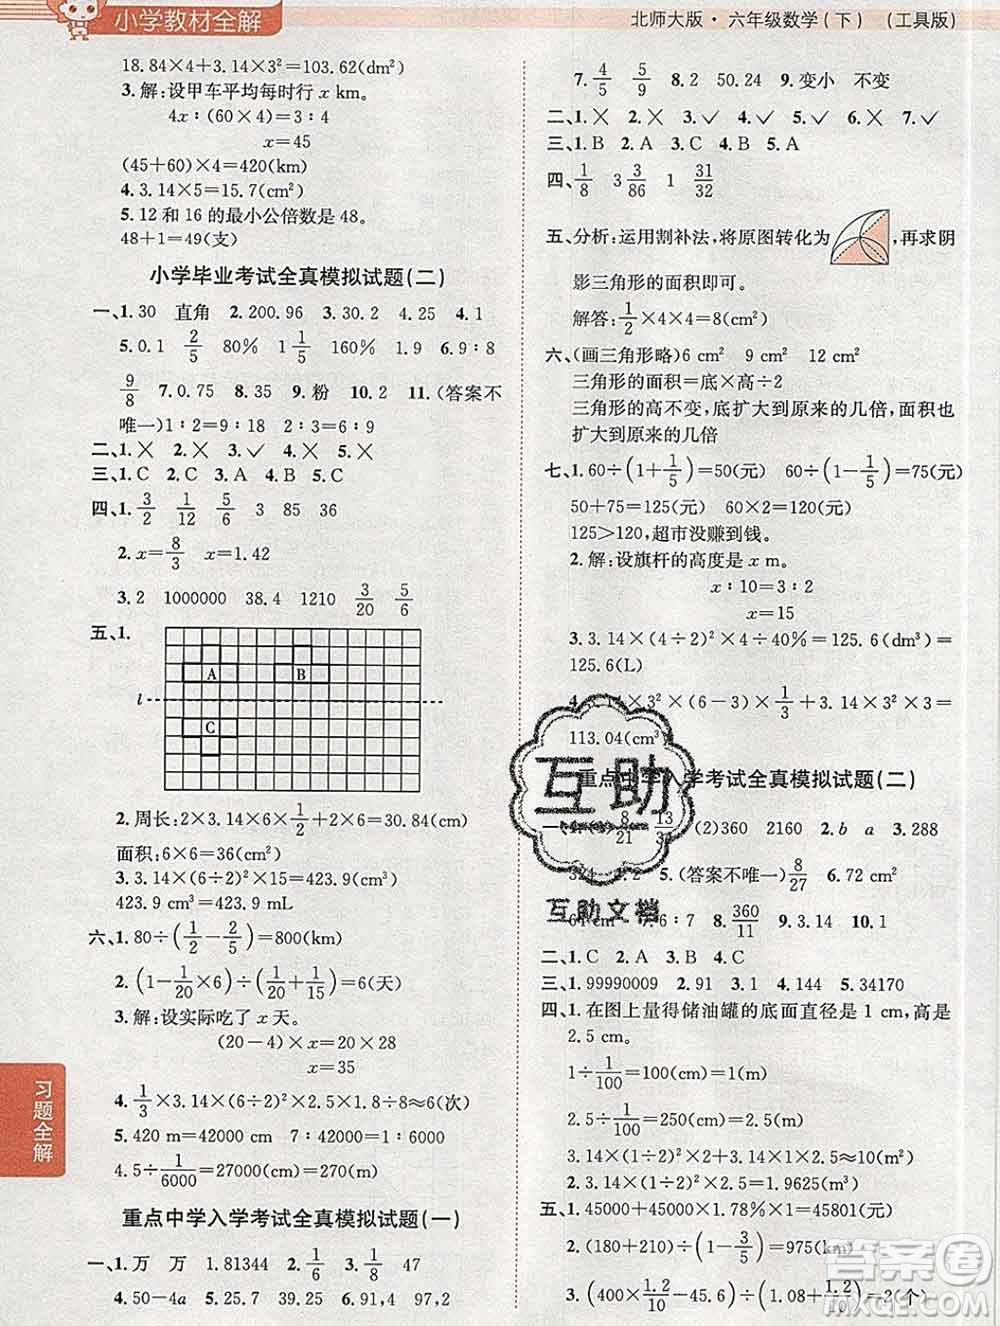 小学教材全解
北师大版·六年级数学(下) (工具版)
18.84×4+3.14×3²=103.62(dm²)
3.解:设甲车平均每时行 x km。
4x∶(60×4)=3∶4
x=45
(45+60)×4=420(km)
4.3.14×5=15.7(cm²)
5.12 和 16 的最小公倍数是 48。
48+1=49(支)
小学毕业考试全真模拟试题(二)
一、1.30 直角 2.200.96 3.30.2 4.25 4.1
5.0.1 2/5 80% 1 1/5 160% 1.9 6.9∶8
9/8 7.0.75 8.35 9.粉 10.2 11.(答案不
唯一)1∶2=9∶18 2∶3=6∶9
二、1.✕ 2.✕ 3.✓ 4.✕ 5.✕
三、1.C 2.C 3.A 4.B 5.C
四、1.3/2 1/12 5/6 3 85 36
2.x=8/3 x=1.42
3.2 1000000 38.4 1210 3/20 5/6
五、1.
A B
l
C
2.周长:2×3.14×6×1/2+2×6=30.84(cm)
面积:6×6=36(cm²)
3.3.14×(6÷2)²×15=423.9(cm³)
423.9 cm³=423.9 mL
六、1.80÷(1/2-2/5)=800(km)
2.(1-1/20×6)÷(1/20+1/15)=6(天)
3.解:设实际吃了 x 天。
(20-4)×x=20×28
x=35
4.1/3×3.14×(6÷2)²×2.5×1.8÷8≈6(次)
5.420 m=42000 cm 7∶42000=1∶6000
4.5÷1/6000=27000(cm)=270(m)
习题全解
重点中学入学考试全真模拟试题(一)
一、1.万 万 1.81344 2.1/6 1/6 3.8 47
4.50-4a 5.27 39.25 6.91 97,2
7.4/5 5/9 8.2 50.24 9.变小 不变
二、1.✕ 2.✕ 3.✓ 4.✓ 5.✓ 6.✕ 7.✓
三、1.B 2.A 3.A 4.B 5.A
四、1/8 3 3/86 1 31/32
五、分析:运用割补法,将原图转化为 ,再求阴
影三角形的面积。
解答:1/2×4×4=8(cm²)
六、(画三角形略)6 cm² 9 cm² 12 cm²
三角形的面积=底×高÷2
三角形的高不变,底扩大到原来的几倍,面积也
扩大到原来的几倍
七、1.60÷(1+1/5)=50(元) 60÷(1-1/5)=75(元)
50+75=125(元) 60×2=120(元)
125>120,超市没赚到钱。
2.解:设旗杆的高度是 x m。
x∶10=3∶2
x=15
3.3.14×(4÷2)²×4÷40%=125.6(dm³)=
125.6(L)
4.3.14×3²×(6-3)×1/3+3.14×3²×3=
113.04(cm³)
重点中学入学考试全真模拟试题(二)
8/21 13 (2)360 2160 2.b a 3.288
324 5.(答案不唯一)8/27 6.72 cm²
7.6∶7 8.360/11 9.3.14 10.1
二、1.C 2.A 3.B 4.B 5.C
三、1.99990009 2.91 3.1 4.9 5.34170
四、1.在图上量得储油罐的底面直径是 1 cm,高是
2.5 cm。
1÷1/100=100(cm)=1(m)
2.5÷1/100=250(cm)=2.5(m)
3.14×(1÷2)²×2+3.14×1×2.5=9.42(m²)
2.3.14×(1÷2)²×2.5=1.9625(m³)
五、1.45000+45000×1.78%×1=45801(元)
2.(180+210)÷(1-3/5)=975(km)
3.(400×1.2/10-45.6)÷(1.08+10-1.2/10)=2(个)
互助
互助文档
答案圈
MXQE.COM